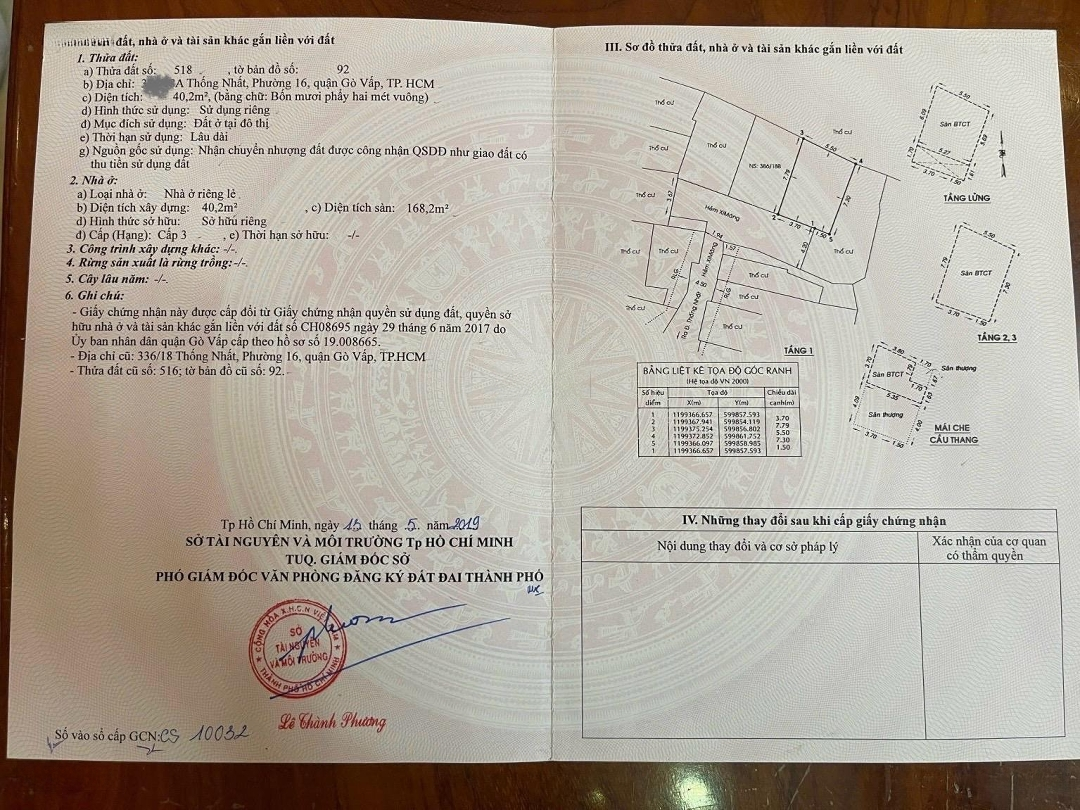 đất, nhà ở và tài sản khác gắn liền với đất
1. Thửa đất:
a) Thửa đất số: 518 , tờ bản đồ số: 92
b) Địa chỉ: A Thống Nhất, Phường 16, quận Gò Vấp, TP. HCM
c) Diện tích: 40,2m², (bằng chữ: Bốn mươi phẩy hai mét vuông)
d) Hình thức sử dụng: Sử dụng riêng
đ) Mục đích sử dụng: Đất ở tại đô thị
e) Thời hạn sử dụng: Lâu dài
g) Nguồn gốc sử dụng: Nhận chuyển nhượng đất được công nhận QSDĐ như giao đất có
thu tiền sử dụng đất
2. Nhà ở:
a) Loại nhà ở: Nhà ở riêng lẻ
b) Diện tích xây dựng: 40,2m² , c) Diện tích sàn: 168,2m²
d) Hình thức sở hữu: Sở hữu riêng
đ) Cấp (Hạng): Cấp 3 , e) Thời hạn sở hữu: -/-
3. Công trình xây dựng khác: -/-.
4. Rừng sản xuất là rừng trồng: -/-.
5. Cây lâu năm: -/-.
6. Ghi chú:
- Giấy chứng nhận này được cấp đổi từ Giấy chứng nhận quyền sử dụng đất, quyền sở
hữu nhà ở và tài sản khác gắn liền với đất số CH08695 ngày 29 tháng 6 năm 2017 do
Ủy ban nhân dân quận Gò Vấp cấp theo hồ sơ số 19.008665.
- Địa chỉ cũ: 336/18 Thống Nhất, Phường 16, quận Gò Vấp, TP.HCM
- Thửa đất cũ số: 516; tờ bản đồ cũ số: 92.
Tp Hồ Chí Minh, ngày 15 tháng 5 năm 2019
SỞ TÀI NGUYÊN VÀ MÔI TRƯỜNG Tp HỒ CHÍ MINH
TUQ. GIÁM ĐỐC SỞ
PHÓ GIÁM ĐỐC VĂN PHÒNG ĐĂNG KÝ ĐẤT ĐAI THÀNH PHỐ
CỘNG HÒA X.H.C.N VIỆT NAM
SỞ
TÀI NGUYÊN
VÀ MÔI TRƯỜNG
THÀNH PHỐ HỒ CHÍ MINH
Lê Thành Phương
Số vào sổ cấp GCN: CS 10032
III. Sơ đồ thửa đất, nhà ở và tài sản khác gắn liền với đất
Thổ cư
Thổ cư
Thổ cư
NS: 386/18B
3
5.50
4
7.79
7.30
2
3.70
1
1.50
5
Thổ cư
3.67
Hẻm XiMăng
4.30
Thổ cư
1.94
1.57
Thổ cư
Thổ cư
RLG
Hẻm XiMăng
RLG
Thổ cư
Thổ cư
Thổ cư
Ra Đ. Thống Nhất
TẦNG 1
5.50
Sân BTCT
5.27
1.70
3.70
1.50
1.61
TẦNG LỬNG
5.50
Sân BTCT
7.79
7.30
3.70
1.50
TẦNG 2, 3
3.80
Sân BTCT
3.70
1.79
1.70
Sân thượng
1.67
5.35
Sân thượng
4.09
4.00
3.70
1.50
MÁI CHE
CẦU THANG
BẢNG LIỆT KÊ TỌA ĐỘ GÓC RANH
(Hệ tọa độ VN 2000)
Số hiệu điểm Tọa độ Chiều dài cạnh(m)
X(m) Y(m)
1 1199366.657 599857.593
3.70
2 1199367.941 599854.119
7.79
3 1199375.254 599856.802
5.50
4 1199372.852 599861.752
7.30
5 1199366.097 599858.985
1.50
1 1199366.657 599857.593
IV. Những thay đổi sau khi cấp giấy chứng nhận
Nội dung thay đổi và cơ sở pháp lý
Xác nhận của cơ quan
có thẩm quyền